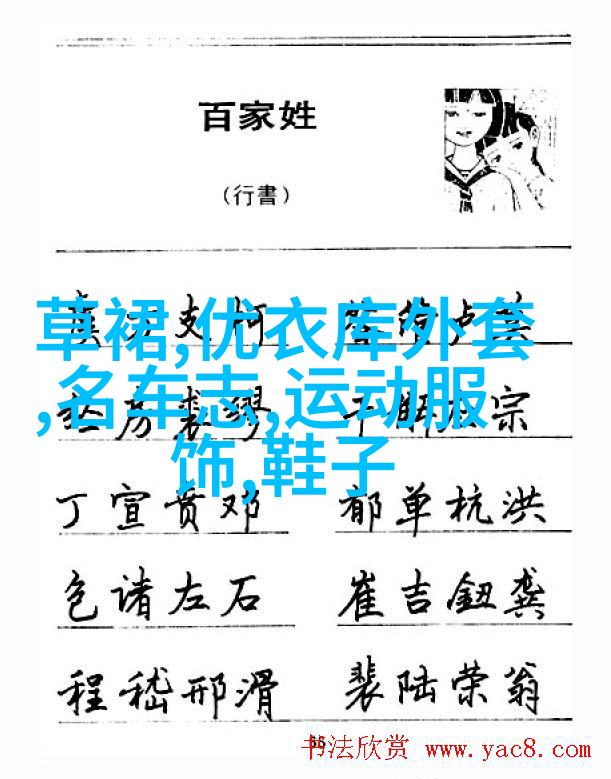 百家姓
（行書）
草裙,优衣库外套
,名车志,运动服
饰,鞋子
支柯 卢莫
房裘缪 干解 宗
丁宣贲邓 郁单杭洪
包诸左石 崔吉鈕龚
程嵇邢滑 裴陆荣翁
66
书法欣赏 www.yac8.com